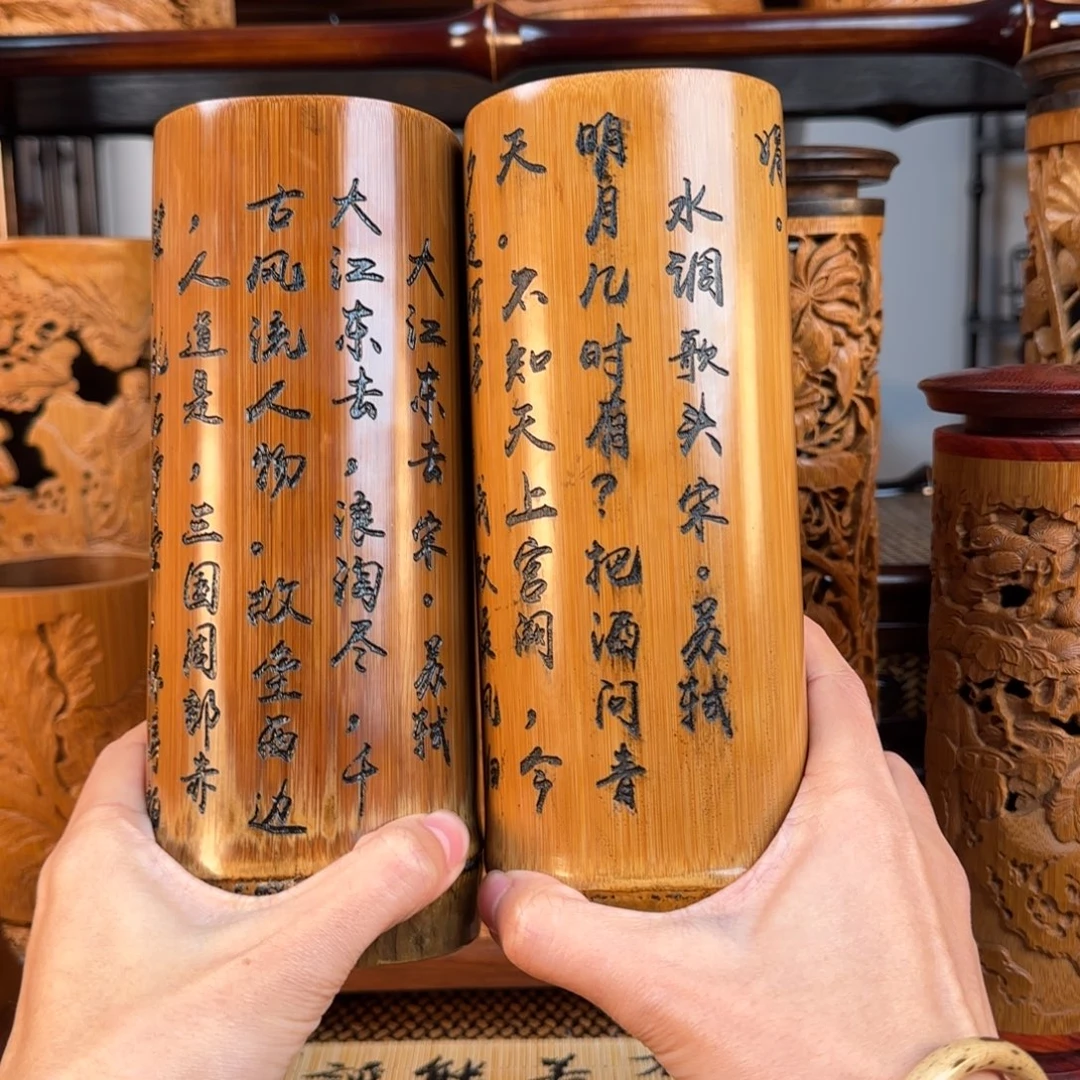 娟。
水调歌头 宋。苏轼
明月几时有?把酒问青
天。不知天上宫阙,今
大江东去 宋。苏轼
大江东去,浪淘尽,千
古风流人物。故垒西边
,人道是,三国周郎赤